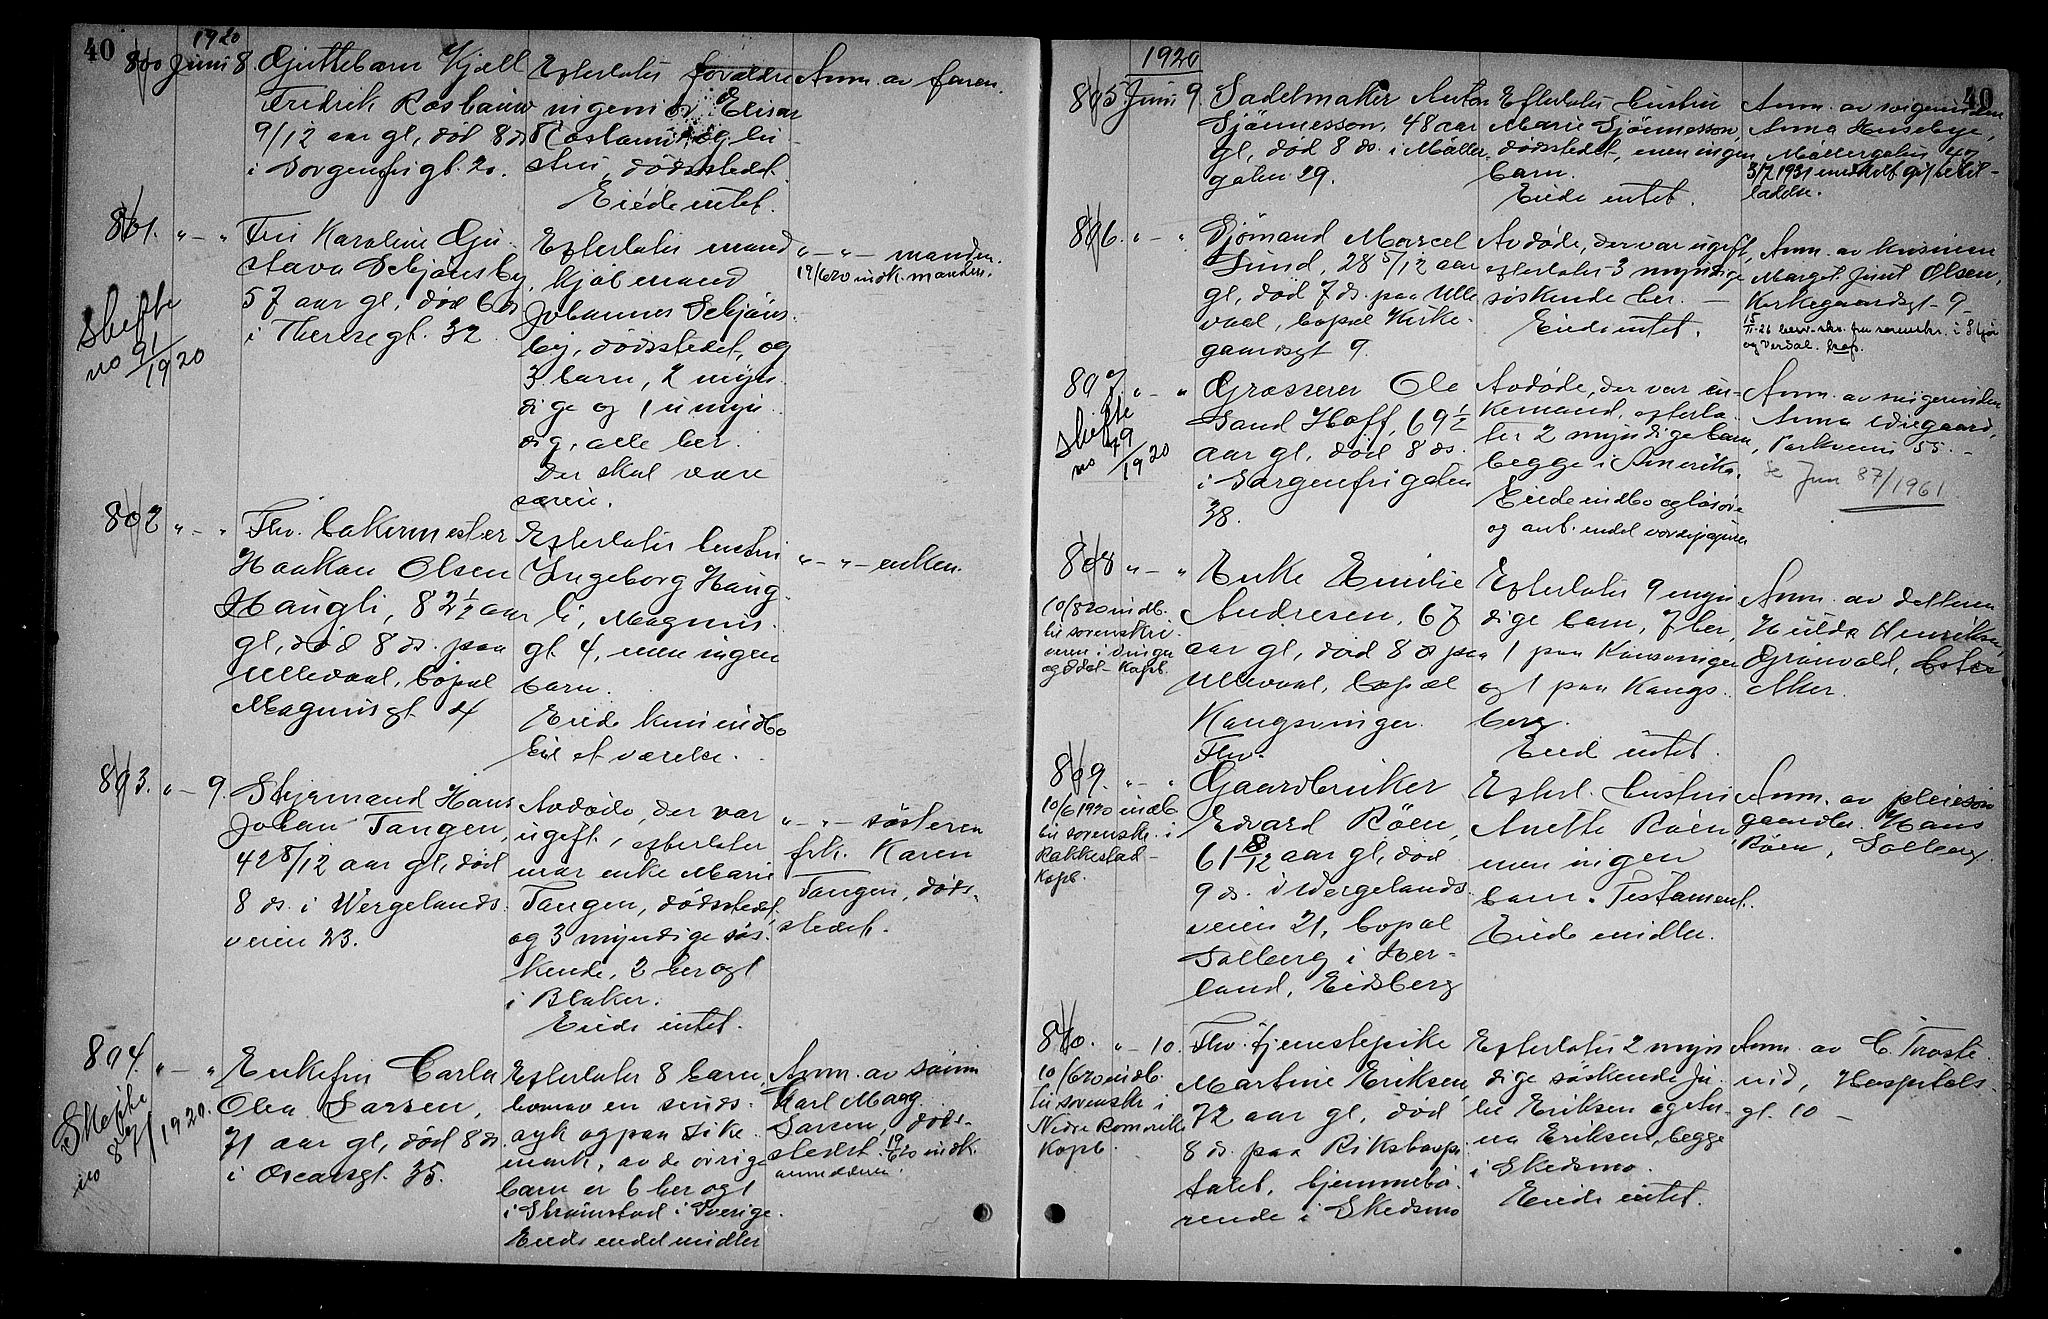 40
1920
800 Juni 8. Gjuttebarn Kjell
Fredrik Rosbaum
9/12 aar gl, död 8 ds
i Sorgenfrigt. 20.
Efterlater forældre
ingeniör Einar
Rosbaum og hu
stru, dödsstedet.
Eiede intet.
Anm. av faren.
801. " — "
Skifte
no 91/1920
Fru Karoline Gu
stava Schjönsby,
57 aar gl, död 6 ds
i Theresegt. 32
Efterlater mand
Kjöbmand
Johannes Schjöns
by, dödsstedet, og
3 barn, 2 myn
dige og 1 umyn
dig, alle her.
Der skal være
særeie.
" — " — manden.
19/6 20 indk. manden.
802 " — "
Fhv. bakermester
Haakon Olsen
Haugli, 82 1/2 aar
gl, död 8 ds. paa
Ullevaal, bopæl
Magnusgt 4
Efterlater hustru
Ingeborg Haug
li, Magnus
gt 4, men ingen
barn.
Eiede kun indbo
til et værelse.
" — " — enken.
803. " — 9.
Styrmand Hans
Johan Tangen,
42 8/12 aar gl, död
8 ds. i Wergelands
veien 23.
Avdöde, der var
ugift, efterlater
mor enke Marie
Tangen, dödsstedet,
og 3 myndige sös
kende, 2 her og 1
i Blaker.
Eiede intet.
" — " — söster
frk. Karen
Tangen, döds
stedet.
804. " — "
Skifte
no 87/1920.
Enkefru Carla
Olea Larsen,
71 aar gl, död 8 ds.
i Oscarsgt. 35.
Efterlater 8 barn,
hvorav en sinds
syk og paa Dike
mark, av de övrige
barn er 6 her og 1
i Strömstad i Sverige.
Eiede endel midler
Anm. av sönn
Karl Maag
Larsen, döds
stedet. 19/6 20 indk.
anmelderen.
1920
40
805 Juni 9.
Sadelmaker Anton
Sjönnesson, 48 aar
gl, död 8 ds. i Möller
gaten 29.
Efterlater hustru
Marie Sjönnesson
dödsstedet, men ingen
barn.
Eiede intet.
Anm. av svigerinden
Anna Huseby,
Möllergaten 49
3/7 1931 uskiftet
806. " — "
Sjömand Marcel
Lund, 28 5/12 aar
gl, död 7 ds. paa Ulle
vaal, bopæl Kirke
gaardsgt 9.
Avdöde, der var ugift,
efterlater 3 myndige
söskende her. —
Eiede intet.
Anm. av kusinen
Marget Juul Olsen,
Kirkegaardsgt 9
og Verdal. kop.
807. " — "
Skifte
no 79/1920
Grosserer Ole
Sand Hoff, 69 1/2
aar gl, död 8 ds.
i Sorgenfrigaten
38.
Avdöde, der var en
kemand, efterla
ter 2 myndige barn,
begge i Amerika.
Eiede indbo og lösöre
og ant. endel verdipapirer
Anm. av svigerinden
Anna Wiegaard,
Parkveien 55. —
se Jnr 87/1961
808 " — "
10/8 20 indb.
til sorenskri
veren i Vinger
og Odal — Kopb.
Enke Emilie
Andresen, 67
aar gl, död 8 ds paa
Ullevaal, bopæl
Kongsvinger.
Efterlater 9 myn
dige barn, 7 her,
1 paa Kongsvinger
og 1 paa Kongs
berg.
Eied intet.
Anm. av datteren
Hulda Henriksen,
Grönvold, Östre
Aker.
809. " — "
10/6 1920 indb.
til sorenskr. i
Rakkestad —
Kopb.
Fhv.
Gaardbruker
Edvard Röen,
61 8/12 aar gl, död
9 ds. i Wergelands
veien 21, bopæl
Solberg i Her
land, Eidsberg
Efterl. hustru
Anette Röen
men ingen
barn. Testament.
Eiede midler.
Anm. av pleiesön
gaardbr. Hans
Röen, Solberg.
810. " — 10.
10/6 20 indb.
til sorenskr i
Nedre Romerike
Kopb.
Fhv. tjenestepike
Martine Eriksen,
72 aar gl, död
8 ds. paa Rikshospi
talet, hjemmehö
rende i Skedsmo
Efterlater 2 myn
dige söskende Ju
lie Eriksen og An
na Eriksen, begge
i Skedsmo.
Eiede intet.
Anm. av C. Troste
rud, Hospitals
gt. 10 —